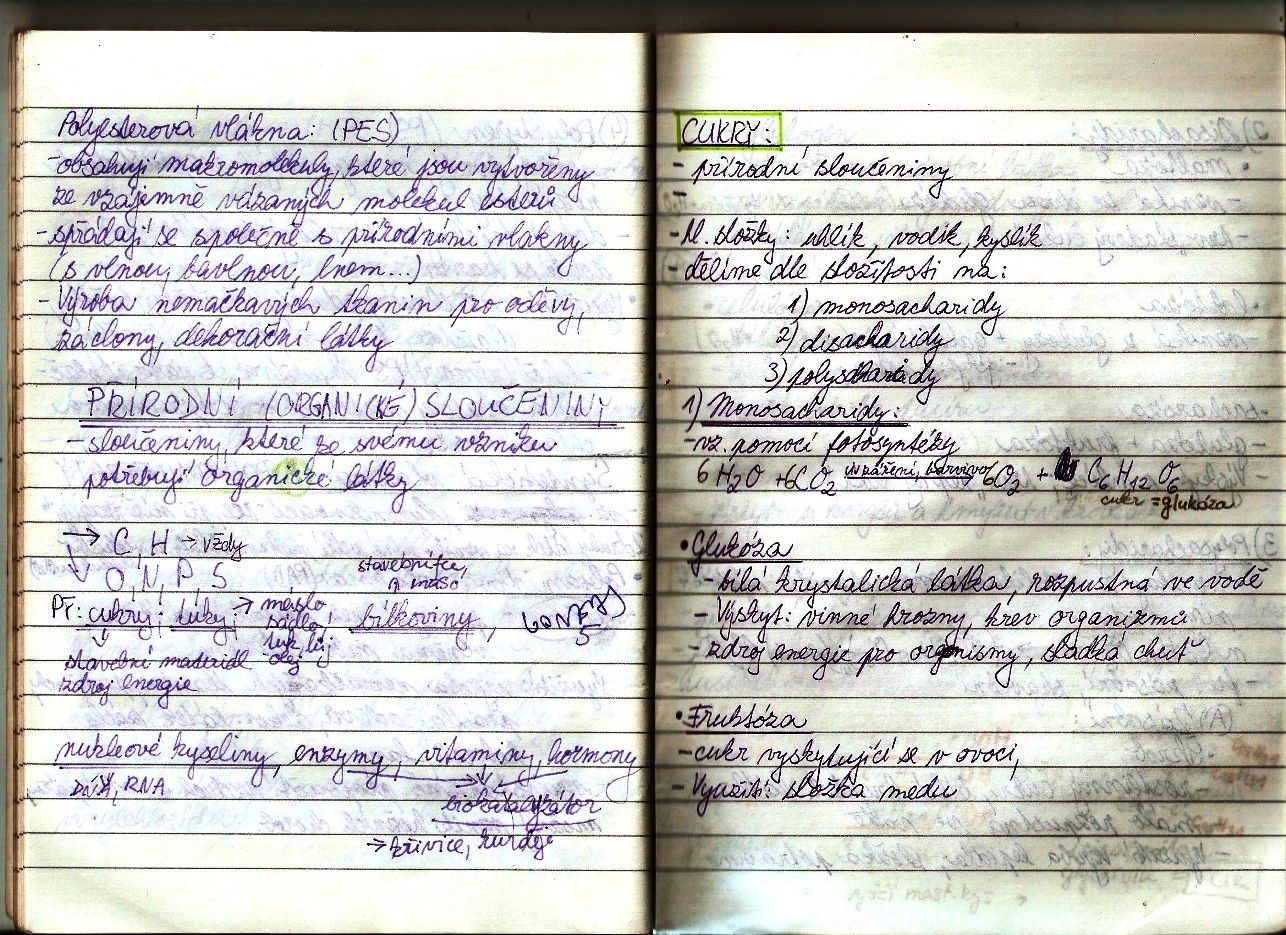 Polyesterová vlákna: (PES)
- obsahují makromolekuly, které jsou vytvořeny
ze vzájemně vázaných molekul esterů
- spřádají se společně s přírodními vlákny
(s vlnou, bavlnou, lnem...)
- Výroba nemačkavých tkanin pro oděvy,
záclony, dekorační látky
PŘÍRODNÍ (ORGANICKÉ) SLOUČENINY
- sloučeniny, které ke svému vzniku
potřebují organické látky
→ C, H → vždy
↓ O, N, P, S
stavebnice,
maso
Př: cukry, tuky, → máslo bílkoviny,
sádlo
lůj
olej
stavební materiál
zdroj energie
nukleové kyseliny, enzymy, vitamíny, hormony
DNA, RNA
biokatalyzátor
→ křivice, kurděje
CUKRY:
- přírodní sloučeniny
- hl. složky: uhlík, vodík, kyslík
- dělíme dle složitosti na:
1) monosacharidy
2) disacharidy
3) polysacharidy
1) Monosacharidy:
- vz. pomocí fotosyntézy
6 H2O + 6CO2 UV záření, barvivo 6O2 + C6H12O6
cukr = glukóza
• Glukóza
- bílá krystalická látka, rozpustná ve vodě
- Výskyt: vinné hrozny, krev organizmů
- zdroj energie pro organismy, sladká chuť
• Fruktóza
- cukr vyskytující se v ovoci,
- Využití: složka medu